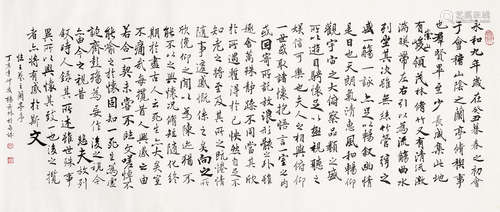 永和九年歲在癸丑暮春之初會
于會稽山陰之蘭亭脩禊事
也羣賢畢至少長咸集此地
有崇山峻領茂林脩竹又有清流激
湍暎帶左右引以為流觴曲水
列坐其次雖無絲竹管弦之
盛一觴一詠亦足以暢叙幽情
是日也天朗氣清惠風和暢仰
觀宇宙之大俯察品類之盛
所以遊目騁懷足以極視聽之
娛信可樂也夫人之相與俯仰
一世或取諸懷抱悟言一室之內
或因寄所託放浪形骸之外雖
趣舍萬殊靜躁不同當其欣
於所遇蹔得於己怏然自足不
知老之將至及其所之既惓情
隨事遷感慨係之矣向之所
欣俛仰之間以為陳迹猶不
能不以之興懷況脩短隨化終
期於盡古人云死生亦大矣豈
不痛哉每攬昔人興感之由
若合一契未嘗不臨文嗟悼不
能喻之於懷固知一死生為虛
誕齊彭殤為妄作後之視今
亦由今之視昔悲夫故列
叙時人錄其所述雖世殊事
異所以興懷其致一也後之攬
者亦將有感於斯文
王羲之蘭亭序